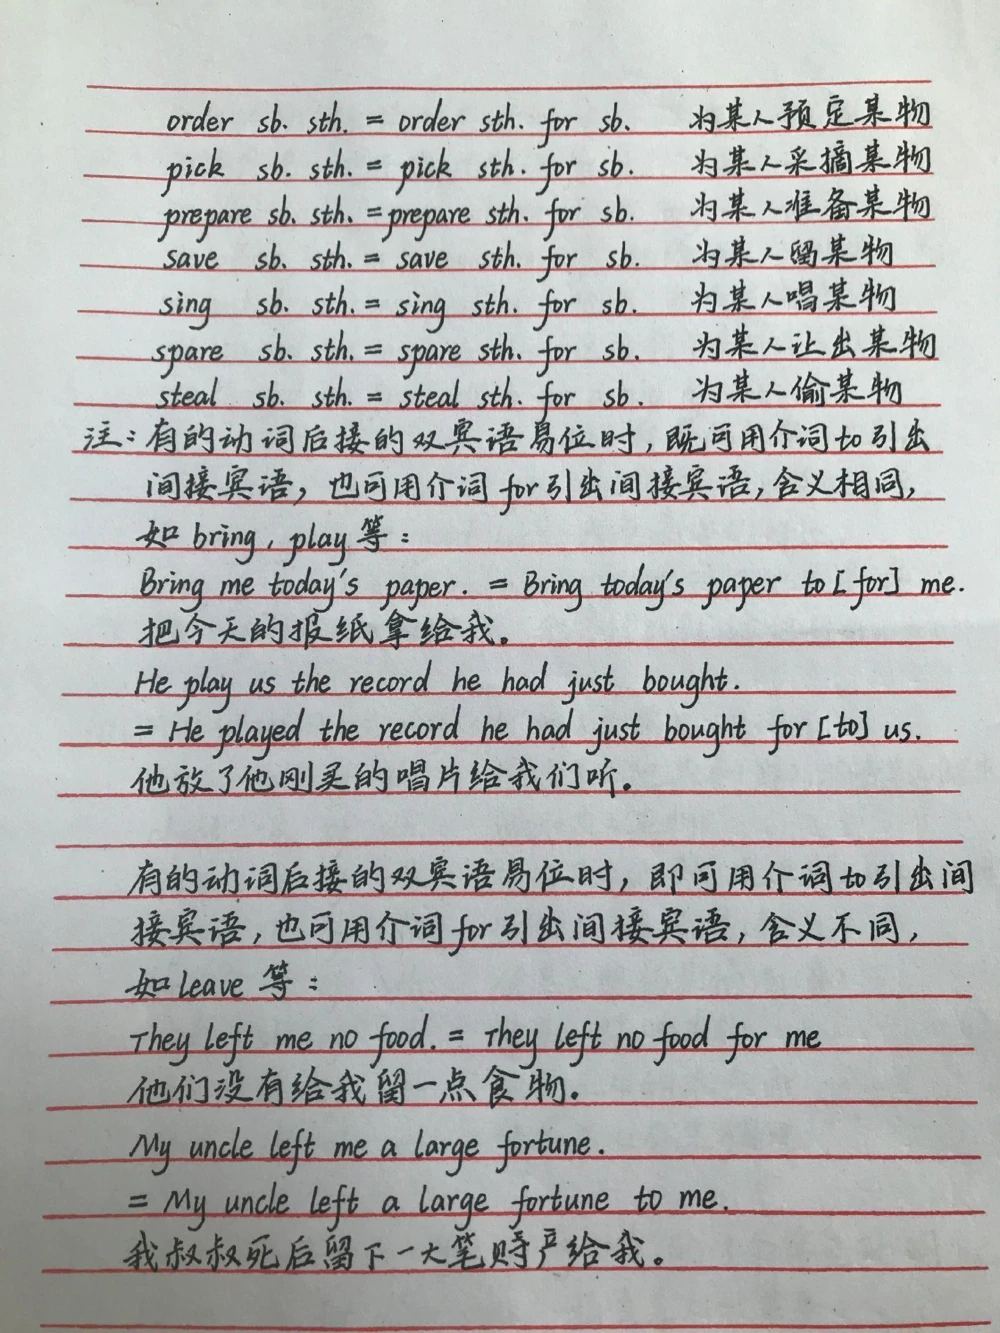 order sb. sth. = order sth. for sb. 为某人预定某物
pick sb. sth. = pick sth. for sb. 为某人采摘某物
prepare sb. sth. = prepare sth. for sb. 为某人准备某物
save sb. sth. = save sth. for sb. 为某人留某物
sing sb. sth. = sing sth. for sb. 为某人唱某物
spare sb. sth. = spare sth. for sb. 为某人让出某物
steal sb. sth. = steal sth. for sb. 为某人偷某物
注：有的动词后接的双宾语易位时，既可用介词to引出
间接宾语，也可用介词for引出间接宾语，含义相同，
如bring，play等：
Bring me today's paper. = Bring today's paper to [for] me.
把今天的报纸拿给我。
He play us the record he had just bought.
= He played the record he had just bought for [to] us.
他放了他刚买的唱片给我们听。
有的动词后接的双宾语易位时，即可用介词to引出间
接宾语，也可用介词for引出间接宾语，含义不同，
如leave等：
They left me no food. = They left no food for me
他们没有给我留一点食物。
My uncle left me a large fortune.
= My uncle left a large fortune to me.
我叔叔死后留下一大笔财产给我。